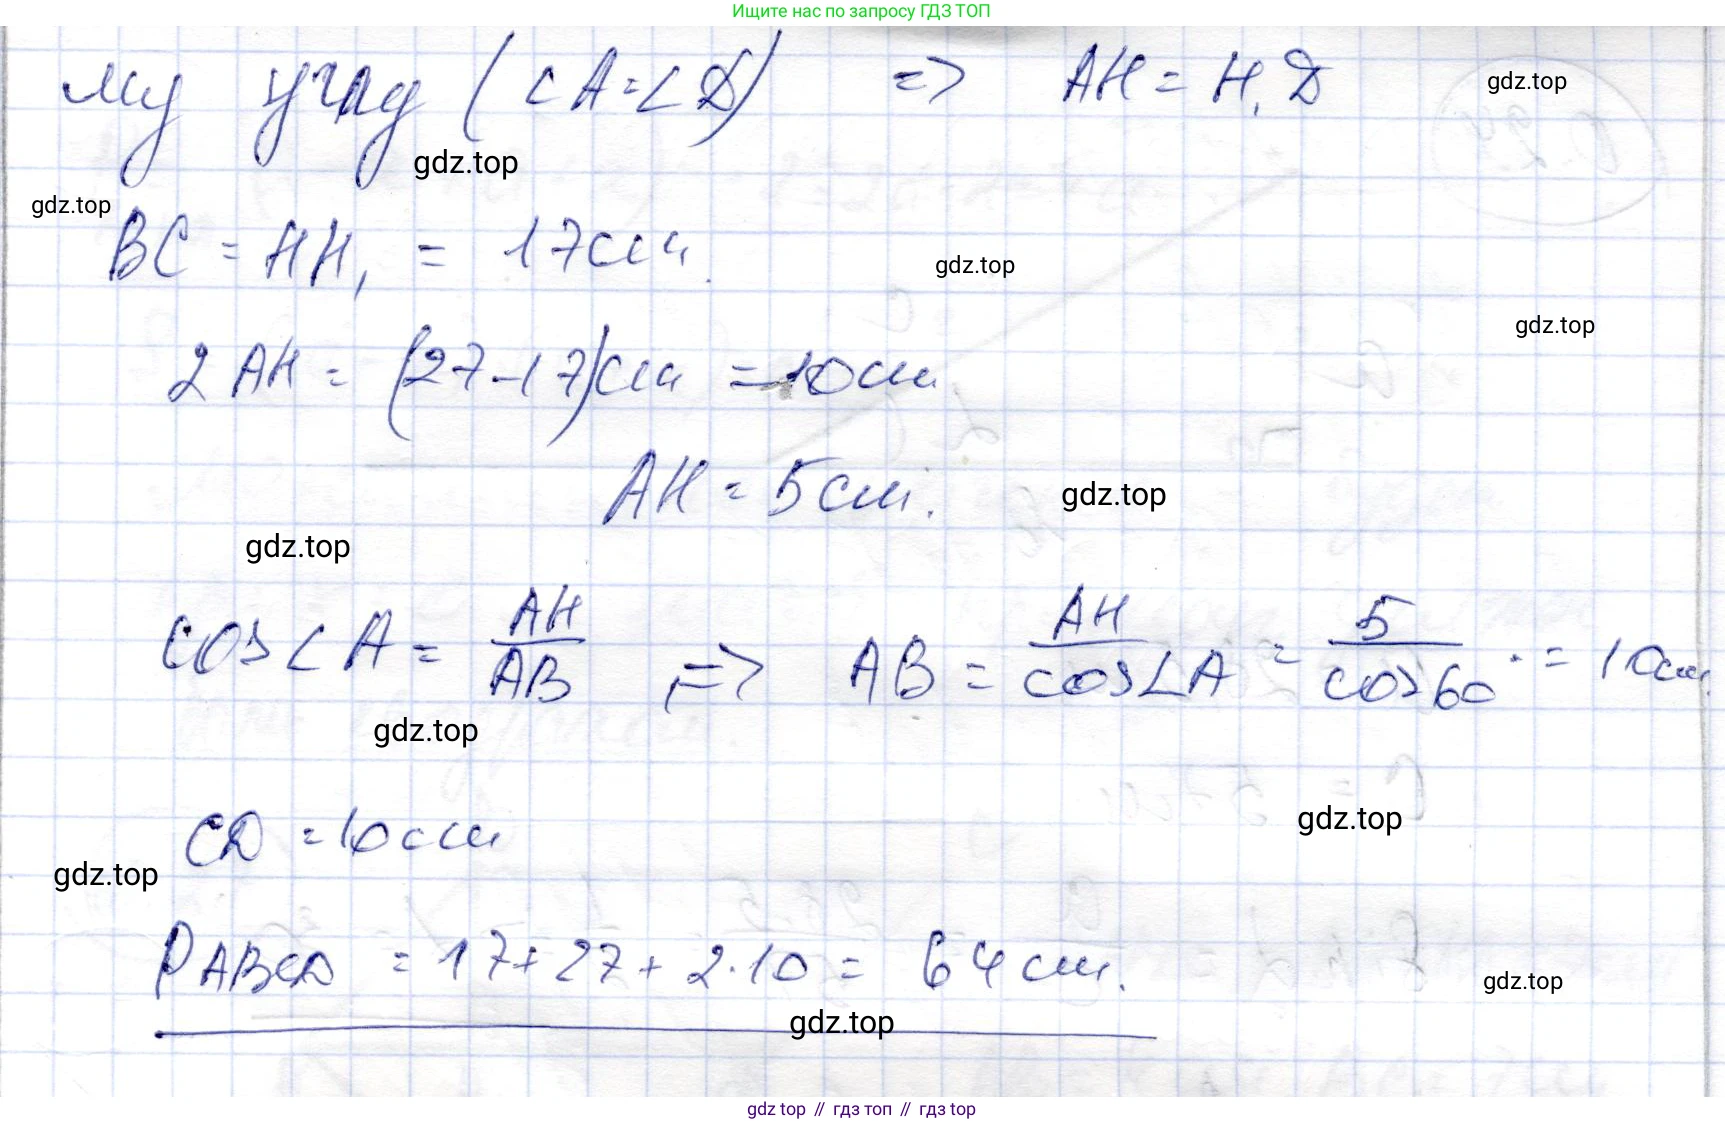 Ищите нас по запросу ГДЗ ТОП
му углу (∠A=∠D) => AH = H₁D
gdz.top
gdz.top
gdz.top
BC = HH₁ = 17см.
gdz.top
gdz.top
2AH = (27-17)см = 10см
AH = 5см.
gdz.top
gdz.top
cos∠A = AH/AB => AB = AH/cos∠A = 5/cos60° = 10см.
gdz.top
CD = 10см
gdz.top
gdz.top
P ABCD = 17+27+2·10 = 64см.
gdz.top
gdz.top
gdz top // гдз топ // гдз top